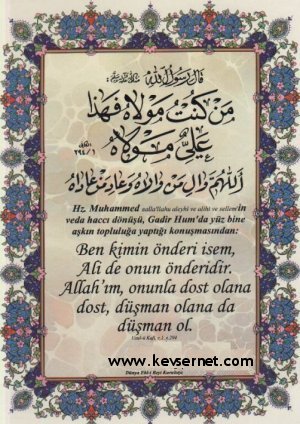 قَالَ رَسُولُ اللهِ
مَنْ كُنْتُ مَوْلَاهُ فَهٰذَا
عَلِيٌّ مَوْلَاهُ
الكافي
١/٢٩٤
اَللّٰهُمَّ وَالِ مَنْ وَالَاهُ وَعَادِ مَنْ عَادَاهُ
Hz. Muhammed sallallahu aleyhi ve alihi ve sellem'in
veda haccı dönüşü, Gadir Hum'da yüz bine
aşkın topluluğa yaptığı konuşmasından:
Ben kimin önderi isem,
Ali de onun önderidir.
Allah'ım, onunla dost olana
dost, düşman olana da
düşman ol.
Usul-ü Kafi, c.1 s.294
www.kevsernet.com
Dünya Ehl-i Beyt Kurultayı